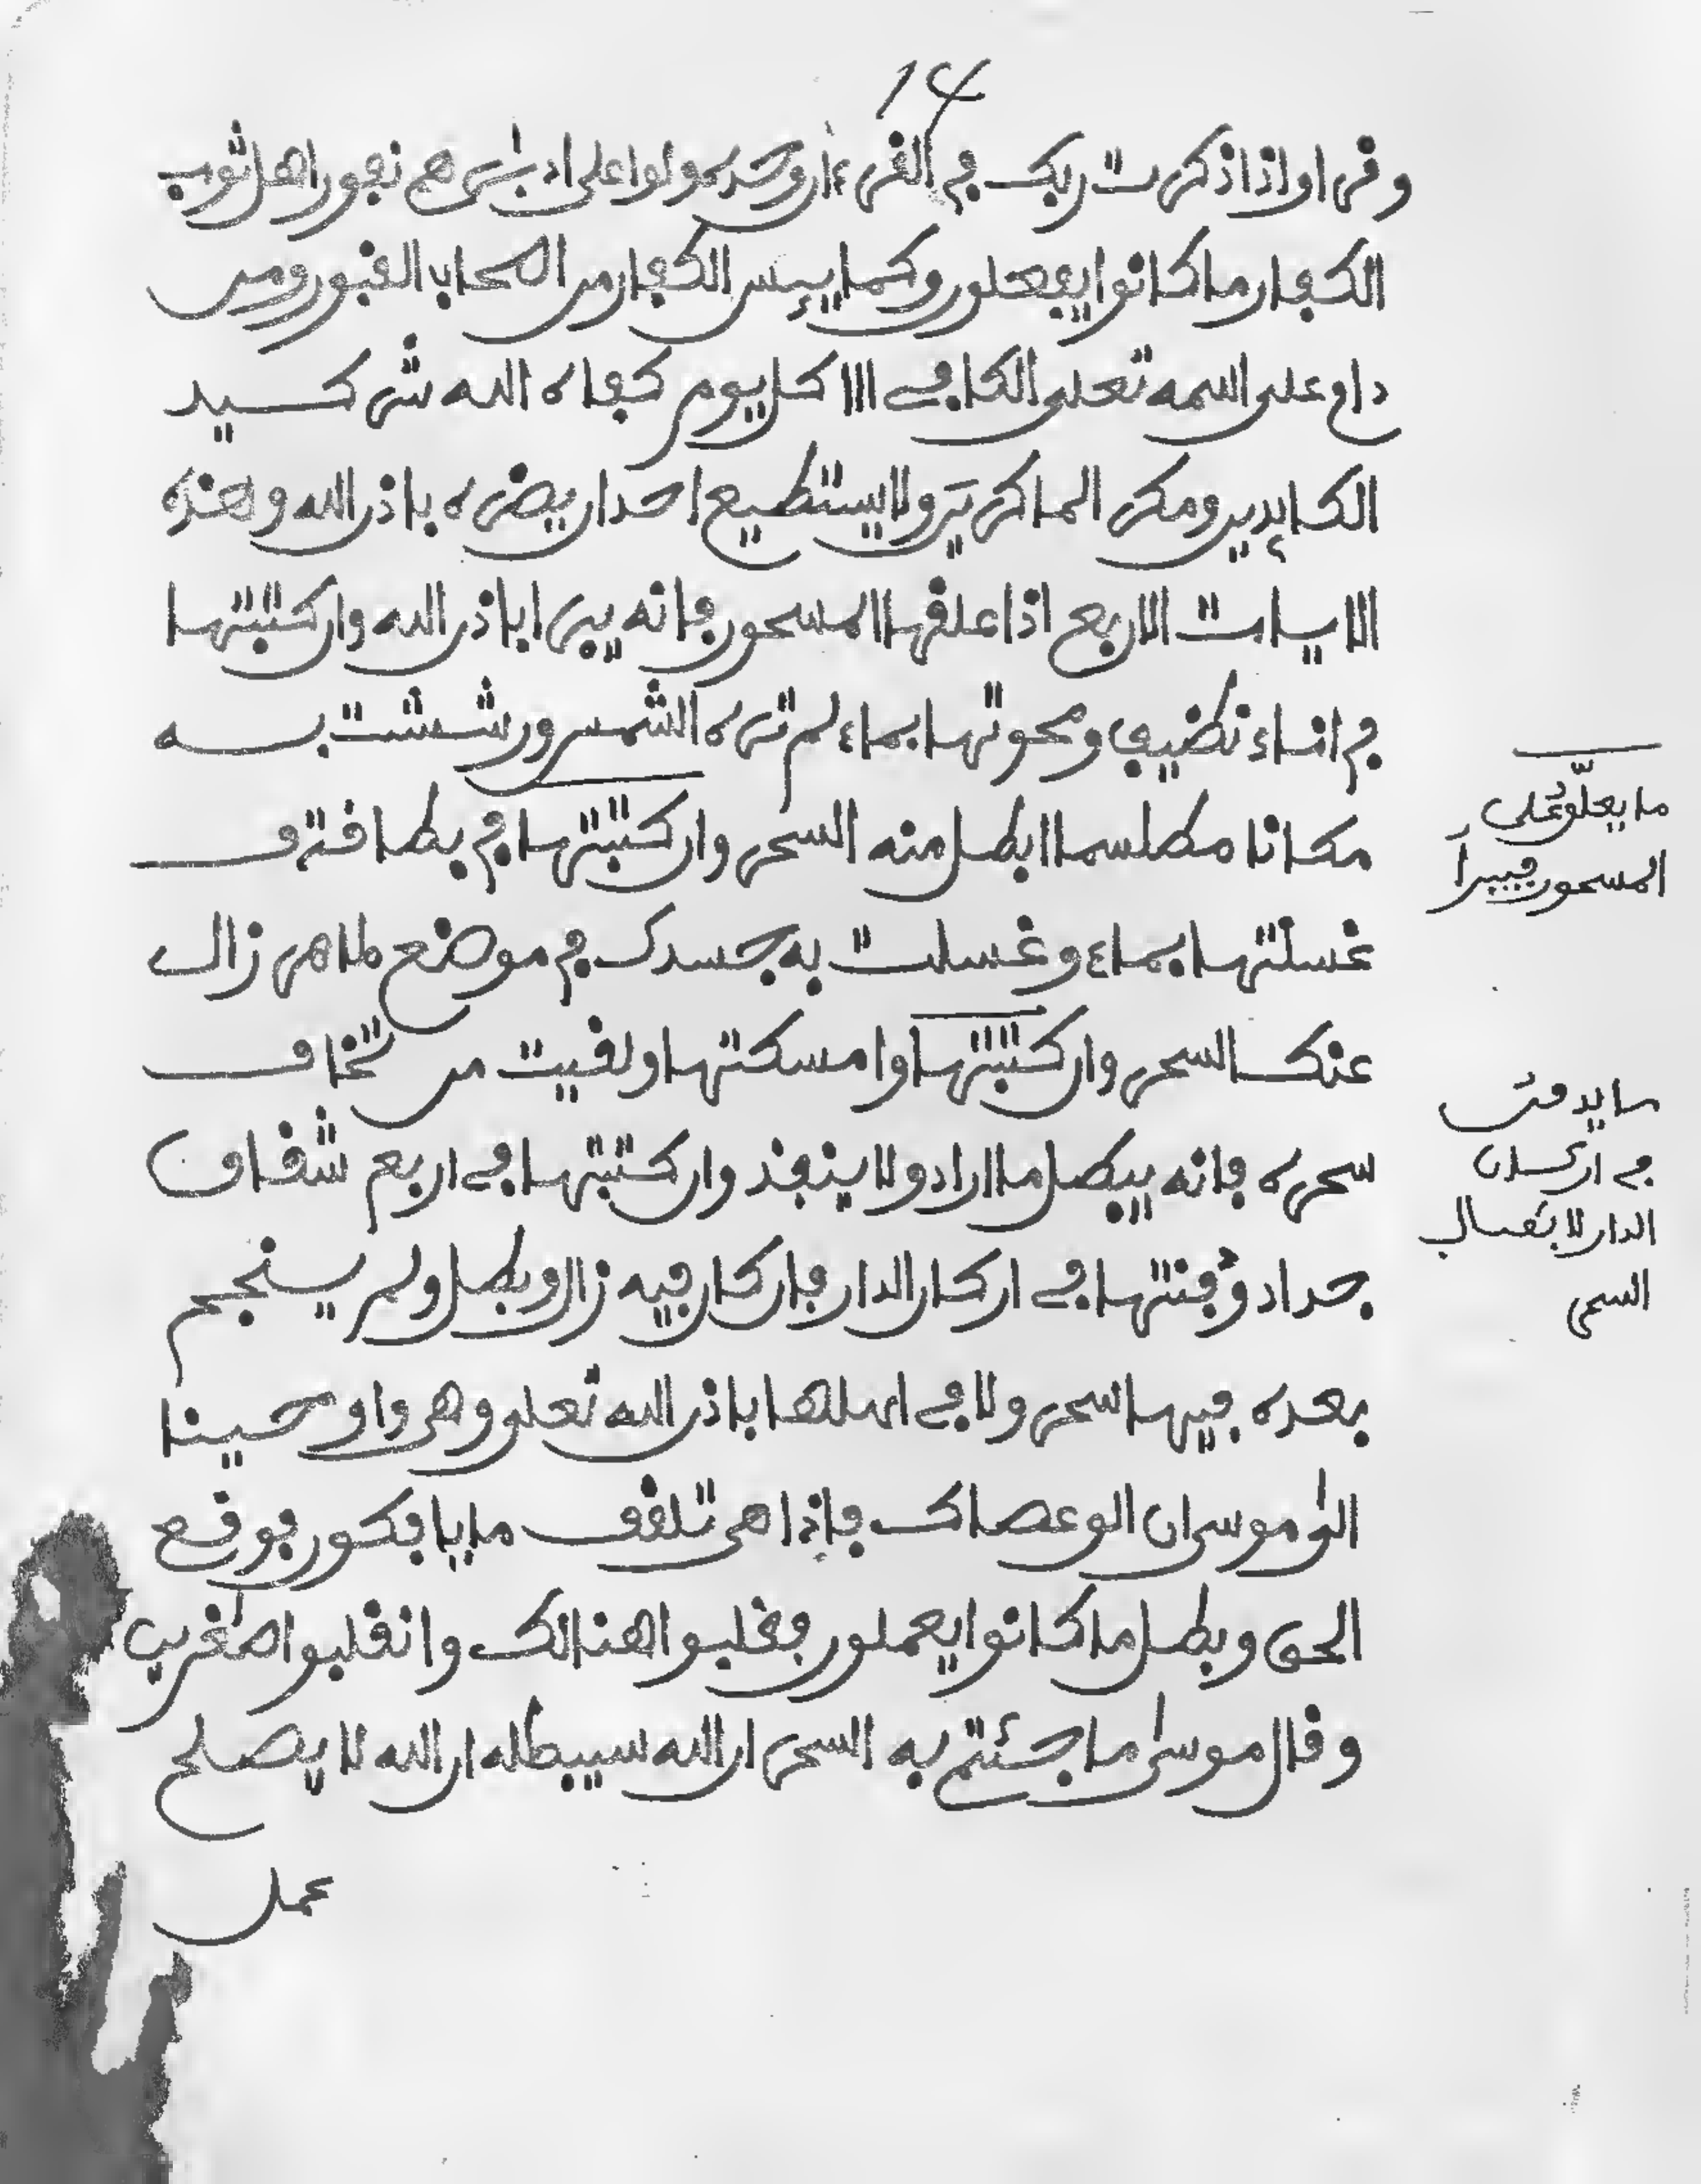 14
وقرا واذا ذكرت ربك في القرءان وحده ولوا على ادبـٰرهم نفورا هل ثوب
الكفار ما كانوا يفعلون وكما ييس الكفار من اصحاب القبور ومن
داوم على اسمه تعلى الكافي ااا كل يوم كفاه الله شر كيد
الكايدين ومكر الماكرين ولا يستطيع احد ان يضره باذن الله وهذه
الايات الاربع اذا علقها المسحور فانه يبرا باذن الله وان كتبتها
في اناء نظيف ومحوتها بماء لم تره الشمس ورششت به
مكانا مطلسما ابطل منه السحر وان كتبتها في بطاقة و
غسلتها بماء وغسلت به جسدك في موضع طاهر زال
عنك السحر وان كتبتها وامسكتها ولقيت من تخاف
سحره فانه يبطل ما اراد ولا ينفذ وان كتبتها في اربع شقاف
جداد ودفنتها في اركان الدار فان كان فيه زال وبطل ولم ينجم
بعده فيها سحر ولا في اهلها باذن الله تعلى وهي واوحينا
الى موسى ان الق عصاك فإذا هي تلقف ما يافكون فوقع
الحق وبطل ما كانوا يعملون فغلبوا هنالك وانقلبوا صغرين
وقال موسى ما جئتم به السحر ان الله سيبطله ان الله لا يصلح
عمل
ما يعلق على
المسحور فيبرأ
ما يدفن
في اركان
الدار لابطال
السحر